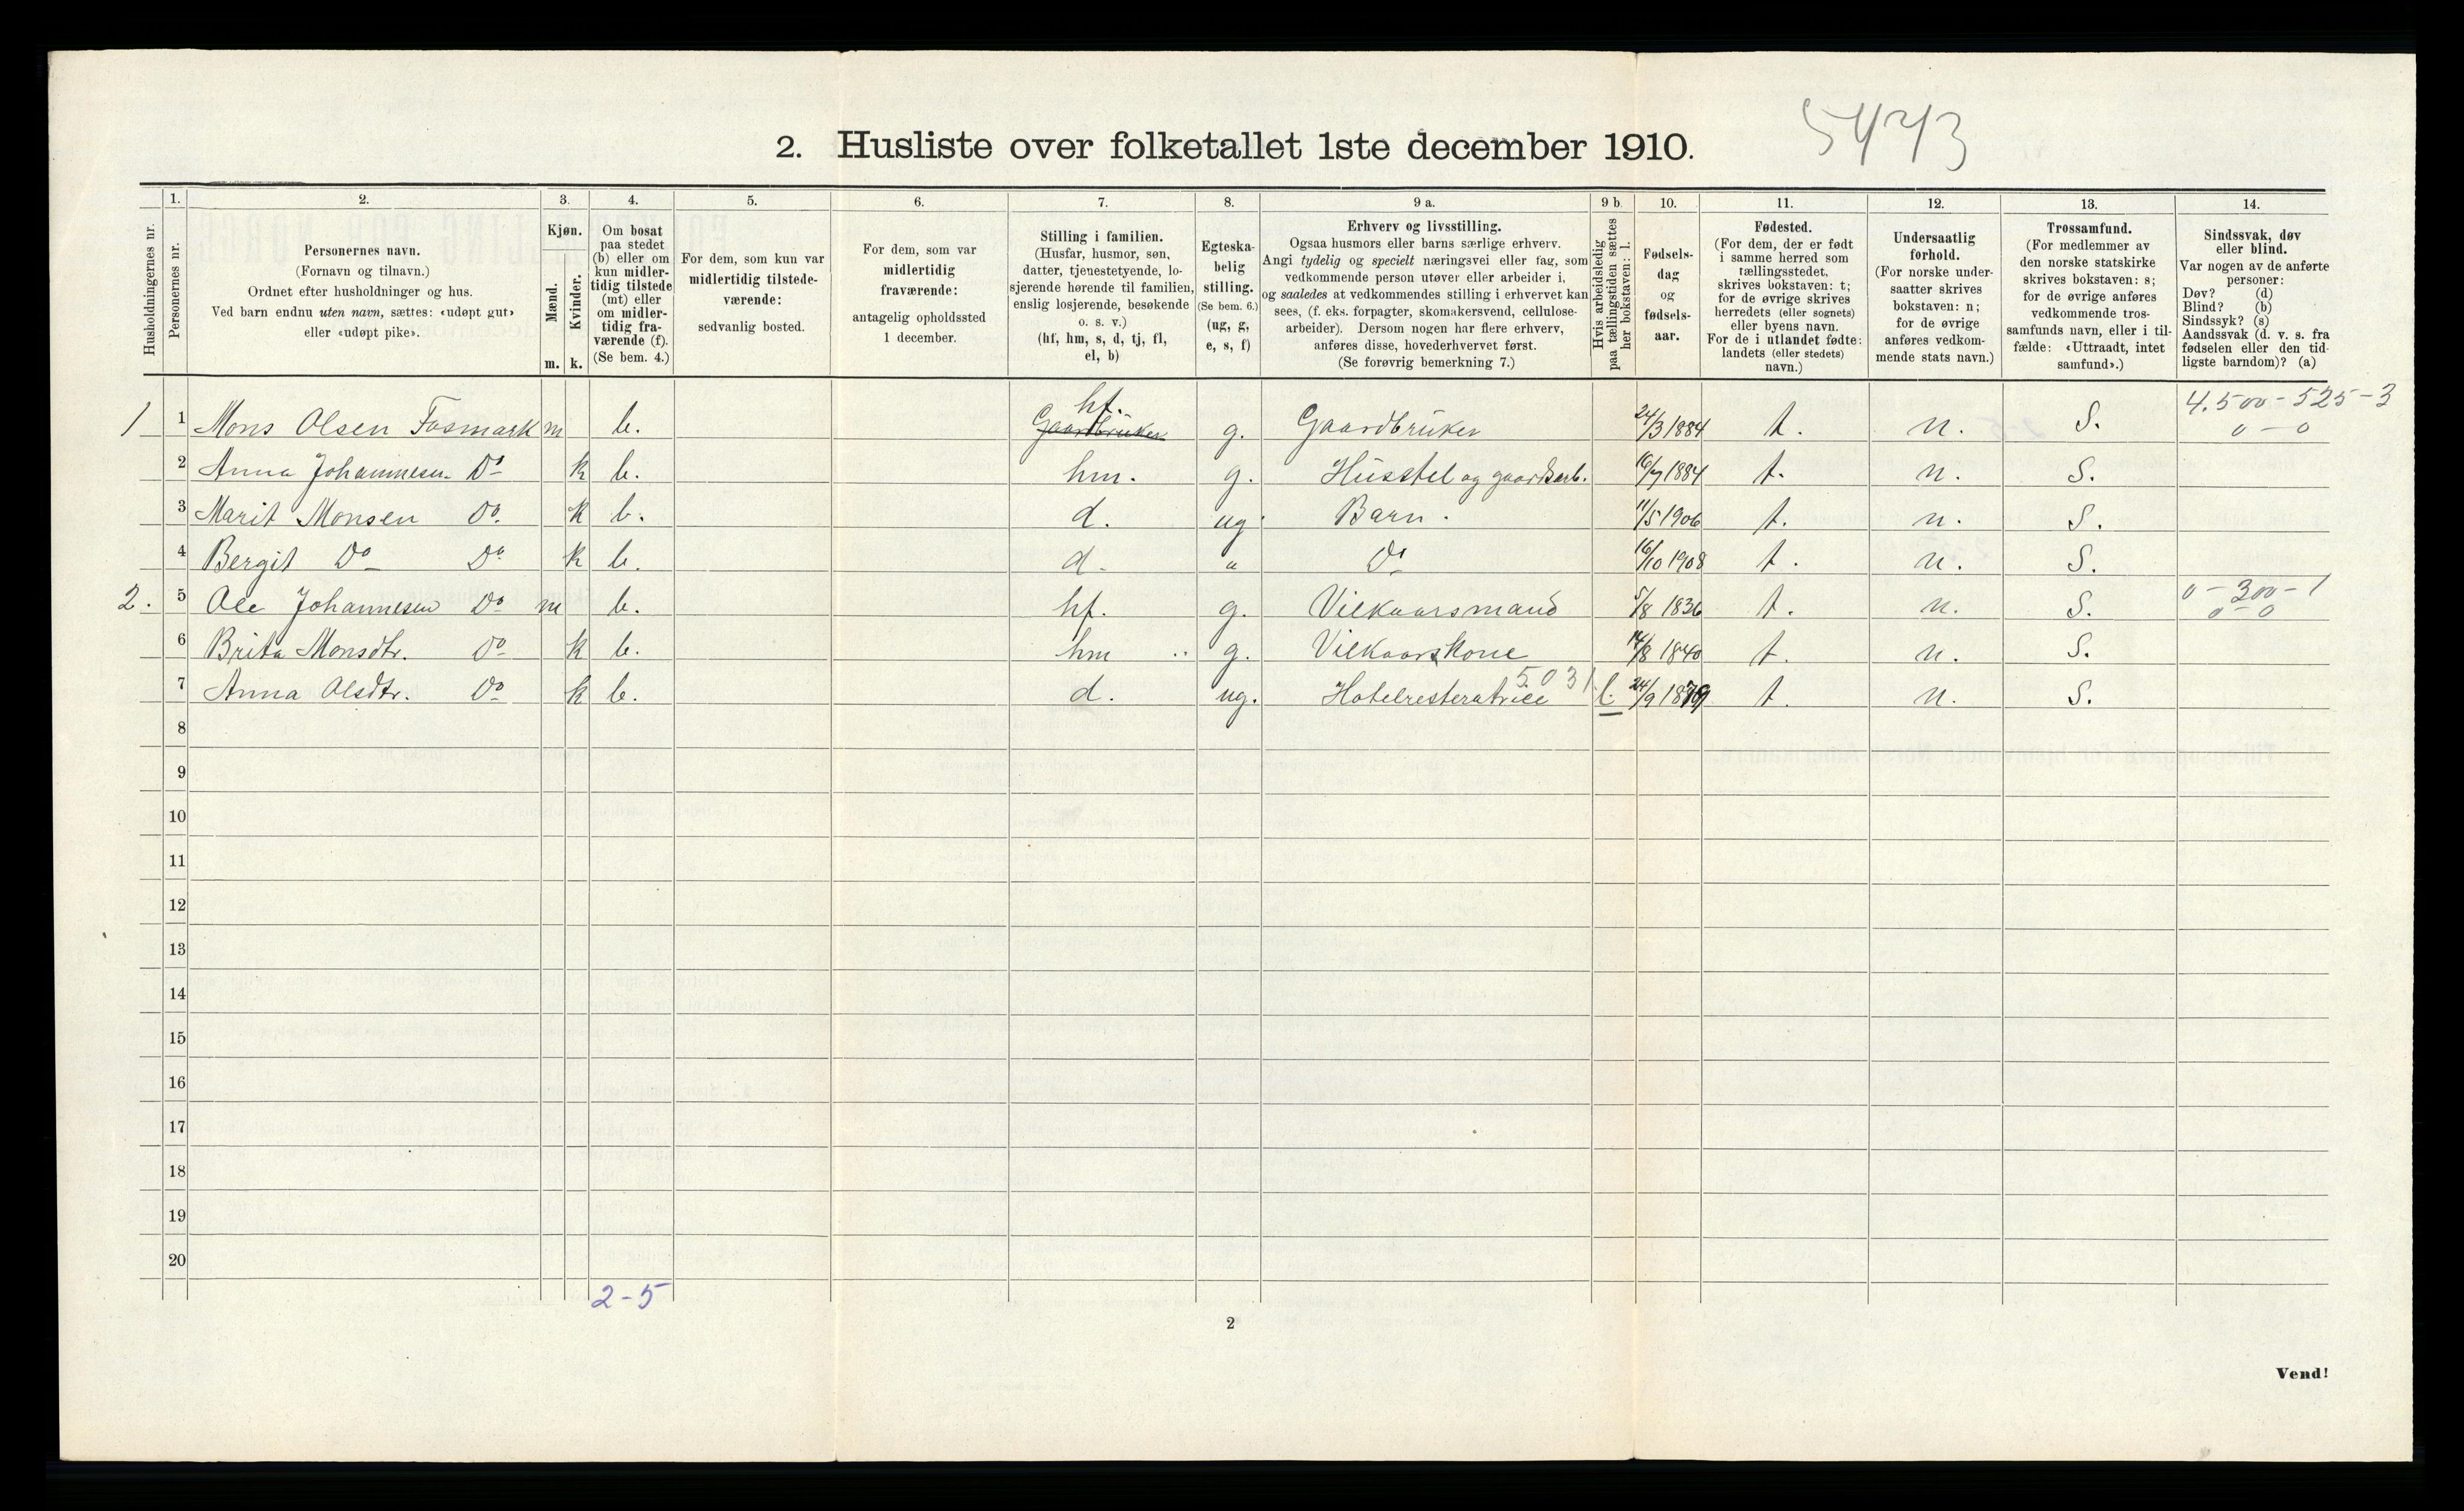 5473
2. Husliste over folketallet 1ste december 1910.
Husholdningernes nr.
1.
Personernes nr.
2.
Personernes navn.
(Fornavn og tilnavn.)
Ordnet efter husholdninger og hus.
Ved barn endnu uten navn, sættes: «udøpt gut»
eller «udøpt pike».
3.
Kjøn.
Mænd.
m.
Kvinder.
k.
4.
Om bosat
paa stedet
(b) eller om
kun midler-
tidig tilstede
(mt) eller
om midler-
tidig fra-
værende (f).
(Se bem. 4.)
5.
For dem, som kun var
midlertidig tilstede-
værende:
sedvanlig bosted.
6.
For dem, som var
midlertidig
fraværende:
antagelig opholdssted
1 december.
7.
Stilling i familien.
(Husfar, husmor, søn,
datter, tjenestetyende, lo-
sjerende hørende til familien,
enslig losjerende, besøkende
o. s. v.)
(hf, hm, s, d, tj, fl,
el, b)
8.
Egteska-
belig
stilling.
(Se bem. 6.)
(ug, g,
e, s, f)
9 a.
Erhverv og livsstilling.
Ogsaa husmors eller barns særlige erhverv.
Angi tydelig og specielt næringsvei eller fag, som
vedkommende person utøver eller arbeider i,
og saaledes at vedkommendes stilling i erhvervet kan
sees, (f. eks. forpagter, skomakersvend, cellulose-
arbeider). Dersom nogen har flere erhverv,
anføres disse, hovederhvervet først.
(Se forøvrig bemerkning 7.)
9 b.
Hvis arbeidsledig
paa tællingstiden sættes
her bokstaven: l.
10.
Fødsels-
dag
og
fødsels-
aar.
11.
Fødested.
(For dem, der er født
i samme herred som
tællingsstedet,
skrives bokstaven: t;
for de øvrige skrives
herredets (eller sognets)
eller byens navn.
For de i utlandet fødte:
landets (eller stedets)
navn.)
12.
Undersaatlig
forhold.
(For norske under-
saatter skrives
bokstaven: n;
for de øvrige
anføres vedkom-
mende stats navn.)
13.
Trossamfund.
(For medlemmer av
den norske statskirke
skrives bokstaven: s;
for de øvrige anføres
vedkommende tros-
samfunds navn, eller i til-
fælde: «Uttraadt, intet
samfund».)
14.
Sindssvak, døv
eller blind.
Var nogen av de anførte
personer:
Døv? (d)
Blind? (b)
Sindssyk? (s)
Aandssvak (d. v. s. fra
fødselen eller den tid-
ligste barndom)? (a)
hf. 4.500-525-3
1 1 Mons Olsen Fosmark m b. Gaardbruker g. Gaardbruker 24/3 1884 t. n. S. 0-0
2 Anna Johannesen Do k b. hm. g. Husstel og gaardsarb. 16/7 1884 t. n. S.
3 Marit Monsen Do. k b. d. ug. Barn. 11/5 1906 t. n. S.
4 Bergit Do Do k b. d. " Do 16/10 1908 t. n. S.
2. 5 Ole Johannesen Do m b. hf. g. Vilkaarsmand 5/8 1836 t. n. S. 0-300-1
0-0
6 Brita Monsdtr. Do k b. hm g. Vilkaarskone 14/8 1840 t. n. S.
5031
7 Anna Olsdtr. Do k b. d. ug. Hotelresteratrice l. 24/9 1879 t. n. S.
8
9
10
11
12
13
14
15
16
17
18
19
20
2-5
2
Vend!